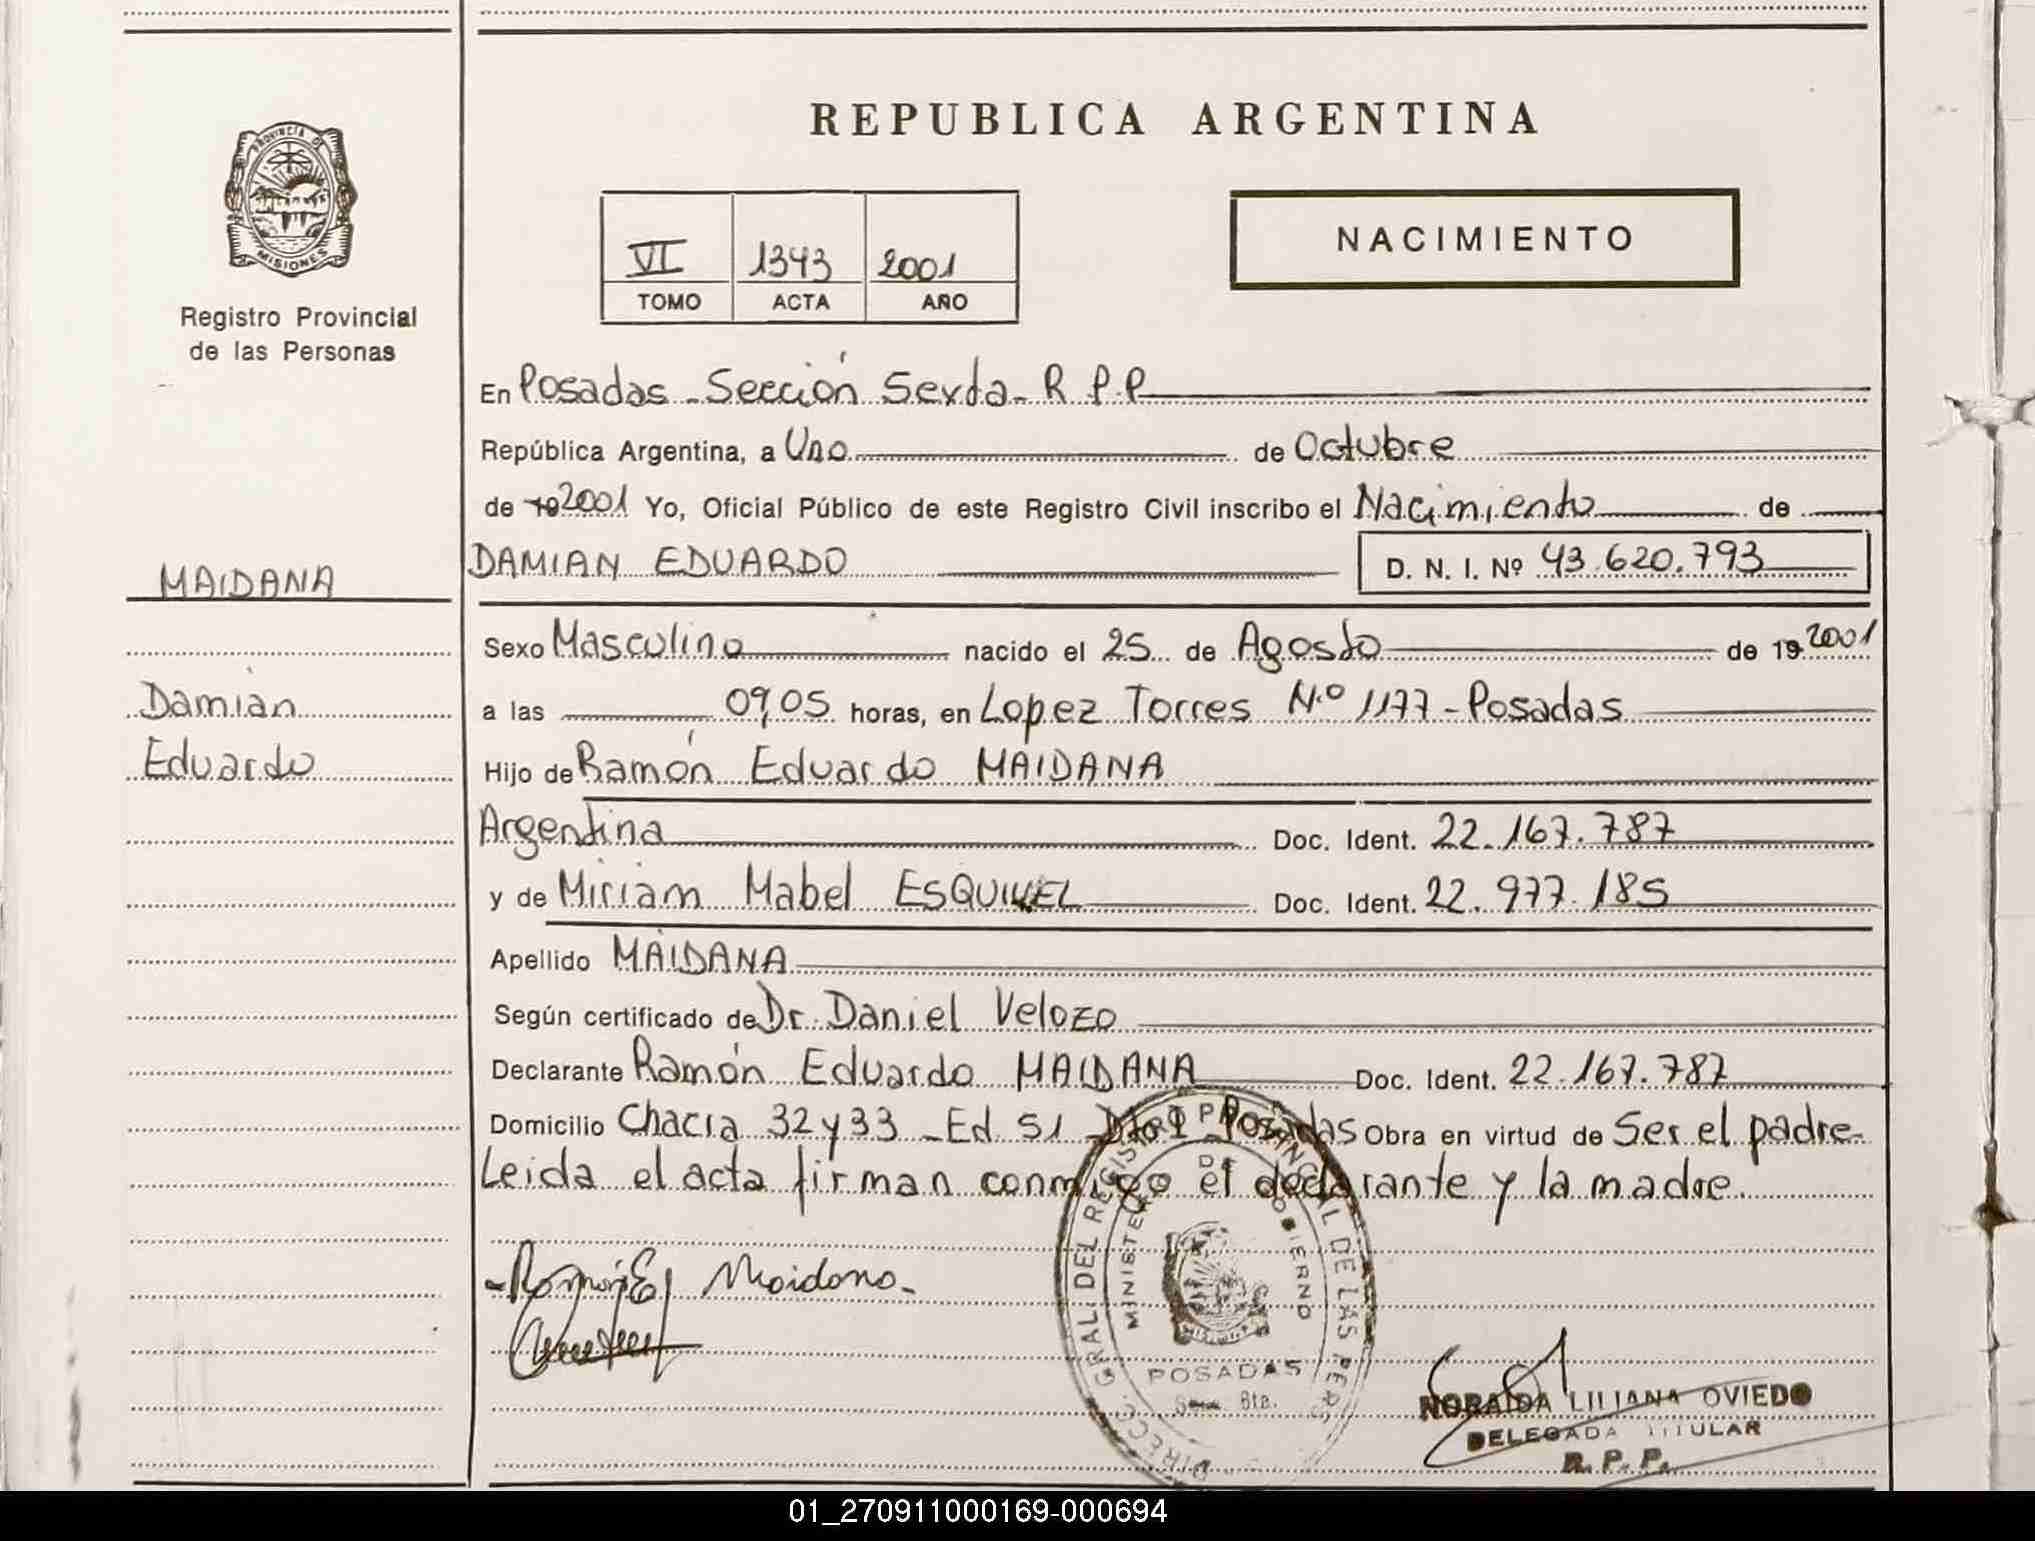 REPUBLICA ARGENTINA
PROVINCIA DE
MISIONES
Registro Provincial
de las Personas
VI 1343 2001
TOMO ACTA AÑO
NACIMIENTO
En Posadas - Sección Sexta - R.P.P.
República Argentina, a Uno de Octubre
de 19 2001 Yo, Oficial Público de este Registro Civil inscribo el Nacimiento de
MAIDANA
DAMIAN EDUARDO D. N. I. Nº 43.620.793
Sexo Masculino nacido el 25 de Agosto de 19 2001
Damian
a las 09,05 horas, en Lopez Torres N.º 1177 - Posadas
Eduardo
Hijo de Ramón Eduardo MAIDANA
Argentina Doc. Ident. 22.167.787
y de Miriam Mabel ESQUIVEL Doc. Ident. 22.977.185
Apellido MAIDANA
Según certificado de Dr. Daniel Velozo
Declarante Ramón Eduardo MAIDANA Doc. Ident. 22.167.787
Domicilio Chacra 32 y 33 - Ed 51 Posadas Obra en virtud de Ser el padre -
Leida el acta firman conmigo el declarante y la madre.
Ramón E Maidana -
DIRECC. GRAL. DEL REGISTRO PROVINCIAL DE LAS PERS
MINISTERIO DE GOBIERNO
POSADAS
6ta.
NORAIDA LILIANA OVIEDO
DELEGADA TITULAR
R. P. P.
01_270911000169-000694